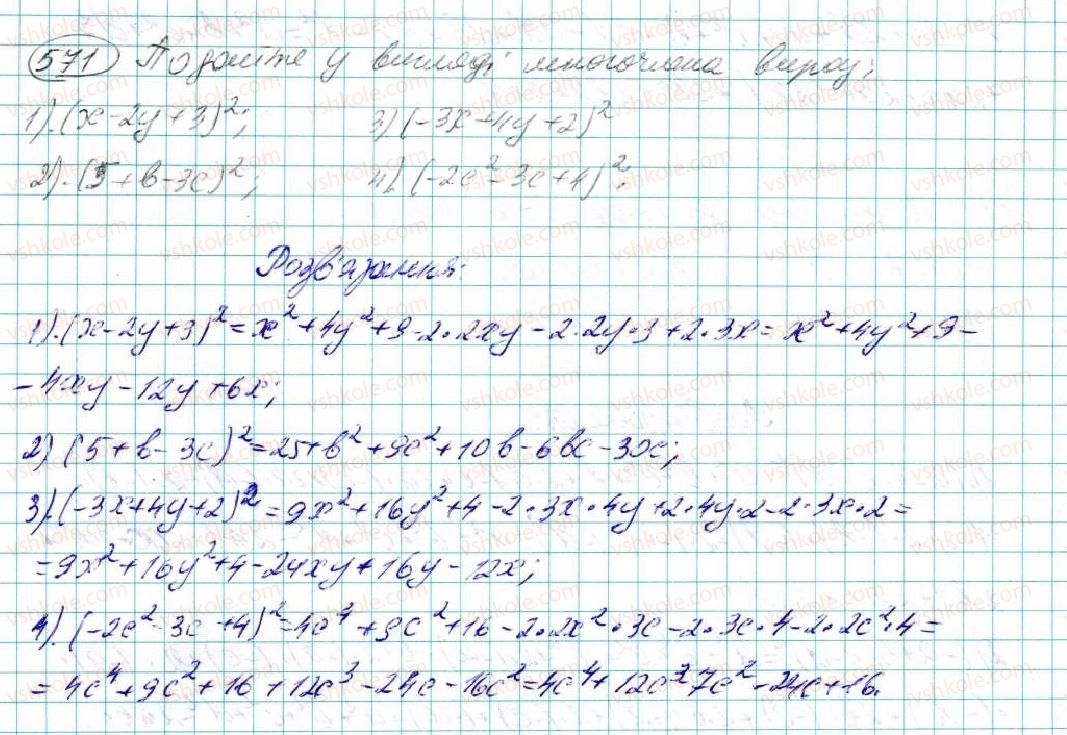 571 Подайте у вигляді многочлена вираз:
1).(x-2y+3)²; 3)(-3x+4y+2)²
2).(5+b-3c)²; 4).(-2c²-3c+4)².
Розв'язання:
1).(x-2y+3)²=x²+4y²+9-2·2xy-2·2y·3+2·3x=x²+4y²+9-
-4xy-12y+6x;
2)(5+b-3c)²=25+b²+9c²+10b-6bc-30c;
3).(-3x+4y+2)²=9x²+16y²+4-2·3x·4y+2·4y·2-2·3x·2=
=9x²+16y²+4-24xy+16y-12x;
4).(-2c²-3c+4)²=4c⁴+9c²+16-2·2x²·3c-2·3c·4-2·2c²·4=
=4c⁴+9c²+16+12c³-24c-16c²=4c⁴+12c³-7c²-24c+16.
vshkole.com